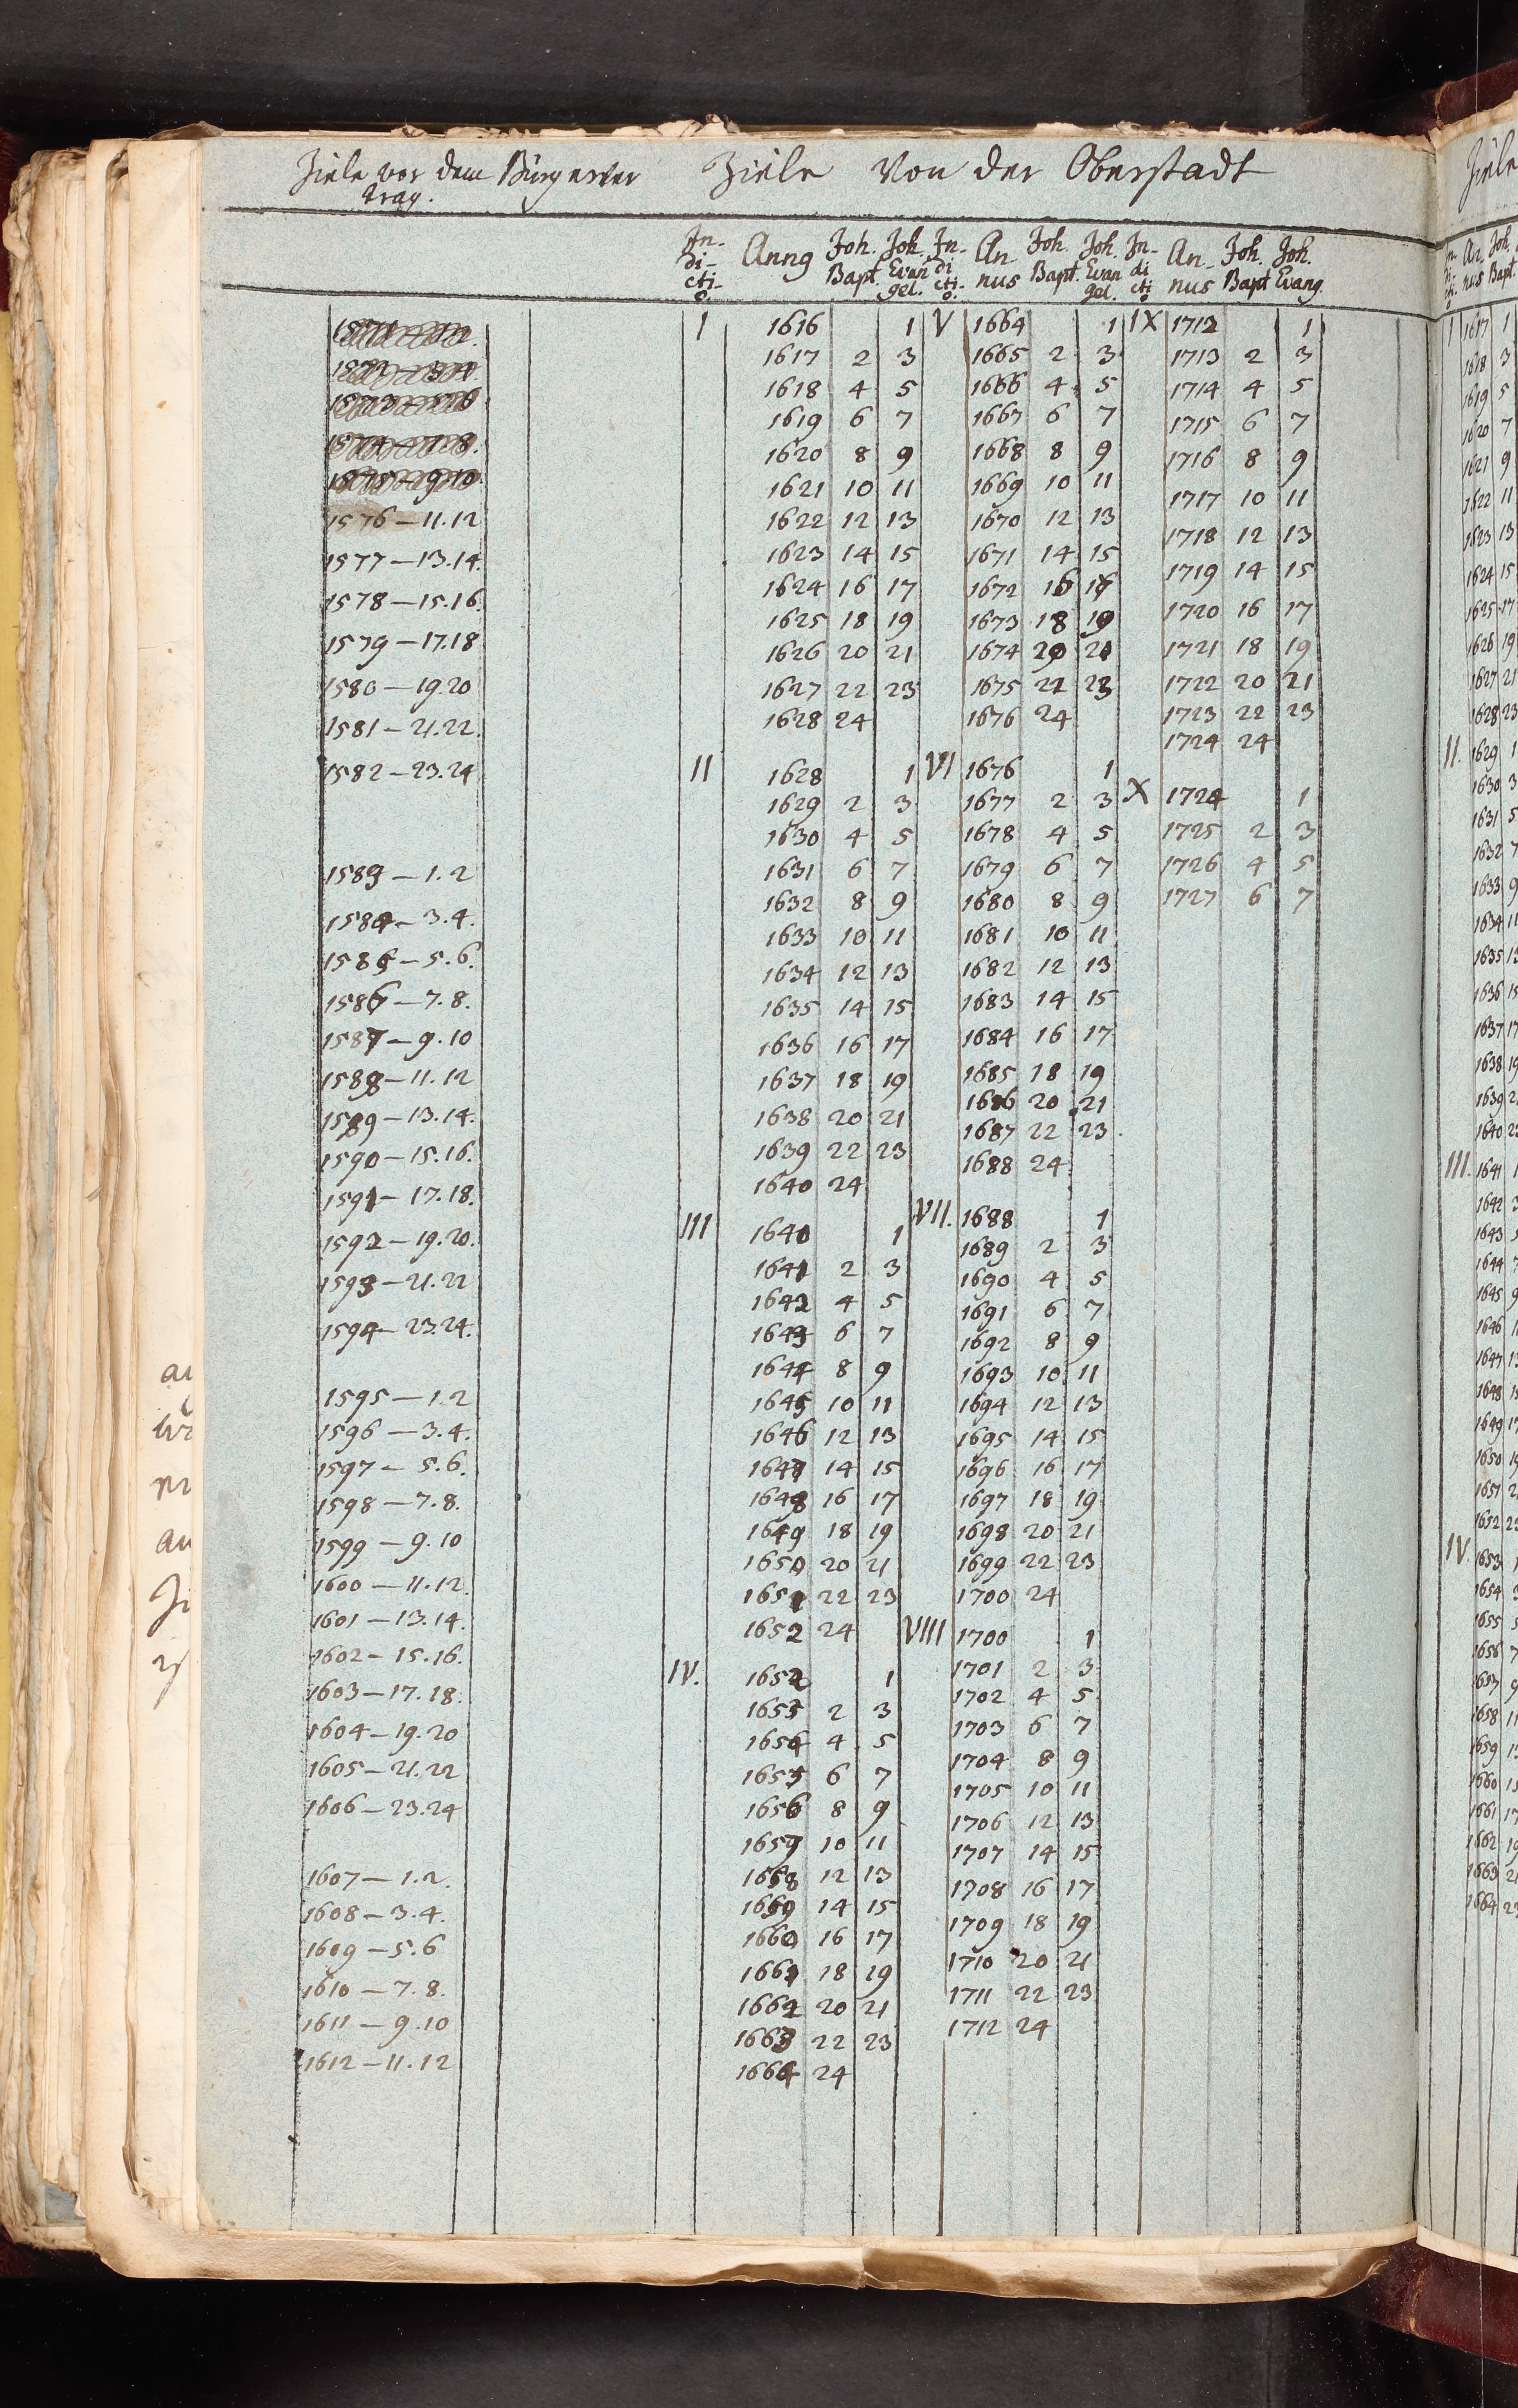 Ziele vor dem Bürgerver
trag.
1576 – 11.12
1577 – 13.14.
1578 – 15.16.
1579 – 17.18
1580 – 19.20
1581 – 21.22.
1582 – 23.24
1583 – 1.2
1584 – 3.4.
1585 – 5.6.
1586 – 7.8.
1587 – 9.10
1588 – 11.12
1589 – 13.14.
1590 – 15.16.
1591 – 17.18.
1592 – 19.20.
1593 – 21.22
1594 – 23.24.
1595 – 1.2
1596 – 3.4.
1597 – 5.6.
1598 – 7.8.
1599 – 9.10
1600 – 11.12.
1601 – 13.14.
1602 – 15.16.
1603 – 17.18.
1604 – 19.20
1605 – 21.22
1606 – 23.24
1607 – 1.2.
1608 – 3.4.
1609 – 5.6
1610 – 7.8.
1611 – 9.10
1612 – 11.12
Ziele Von der Oberstadt
In-di-cti-o. Anno Joh. Bapt. Joh. Evangel.
I 1616 1
1617 2 3
1618 4 5
1619 6 7
1620 8 9
1621 10 11
1622 12 13
1623 14 15
1624 16 17
1625 18 19
1626 20 21
1627 22 23
1628 24
II 1628 1
1629 2 3
1630 4 5
1631 6 7
1632 8 9
1633 10 11
1634 12 13
1635 14 15
1636 16 17
1637 18 19
1638 20 21
1639 22 23
1640 24
III 1640 1
1641 2 3
1642 4 5
1643 6 7
1644 8 9
1645 10 11
1646 12 13
1647 14 15
1648 16 17
1649 18 19
1650 20 21
1651 22 23
1652 24
IV. 1652 1
1653 2 3
1654 4 5
1655 6 7
1656 8 9
1657 10 11
1658 12 13
1659 14 15
1660 16 17
1661 18 19
1662 20 21
1663 22 23
1664 24
In-di-cti-o. An-nus Joh. Bapt. Joh. Evangel.
V 1664 1
1665 2 3
1666 4 5
1667 6 7
1668 8 9
1669 10 11
1670 12 13
1671 14 15
1672 16 17
1673 18 19
1674 20 21
1675 22 23
1676 24
VI 1676 1
1677 2 3
1678 4 5
1679 6 7
1680 8 9
1681 10 11
1682 12 13
1683 14 15
1684 16 17
1685 18 19
1686 20 21
1687 22 23.
1688 24
VII. 1688 1
1689 2 3
1690 4 5
1691 6 7
1692 8 9
1693 10 11
1694 12 13
1695 14 15
1696 16 17
1697 18 19
1698 20 21
1699 22 23
1700 24
VIII 1700 1
1701 2 3
1702 4 5
1703 6 7
1704 8 9
1705 10 11
1706 12 13
1707 14 15
1708 16 17
1709 18 19
1710 20 21
1711 22 23
1712 24
In-di-cti-o An-nus Joh. Bapt Joh. Evang.
IX 1712 1
1713 2 3
1714 4 5
1715 6 7
1716 8 9
1717 10 11
1718 12 13
1719 14 15
1720 16 17
1721 18 19
1722 20 21
1723 22 23
1724 24
X 1724 1
1725 2 3
1726 4 5
1727 6 7